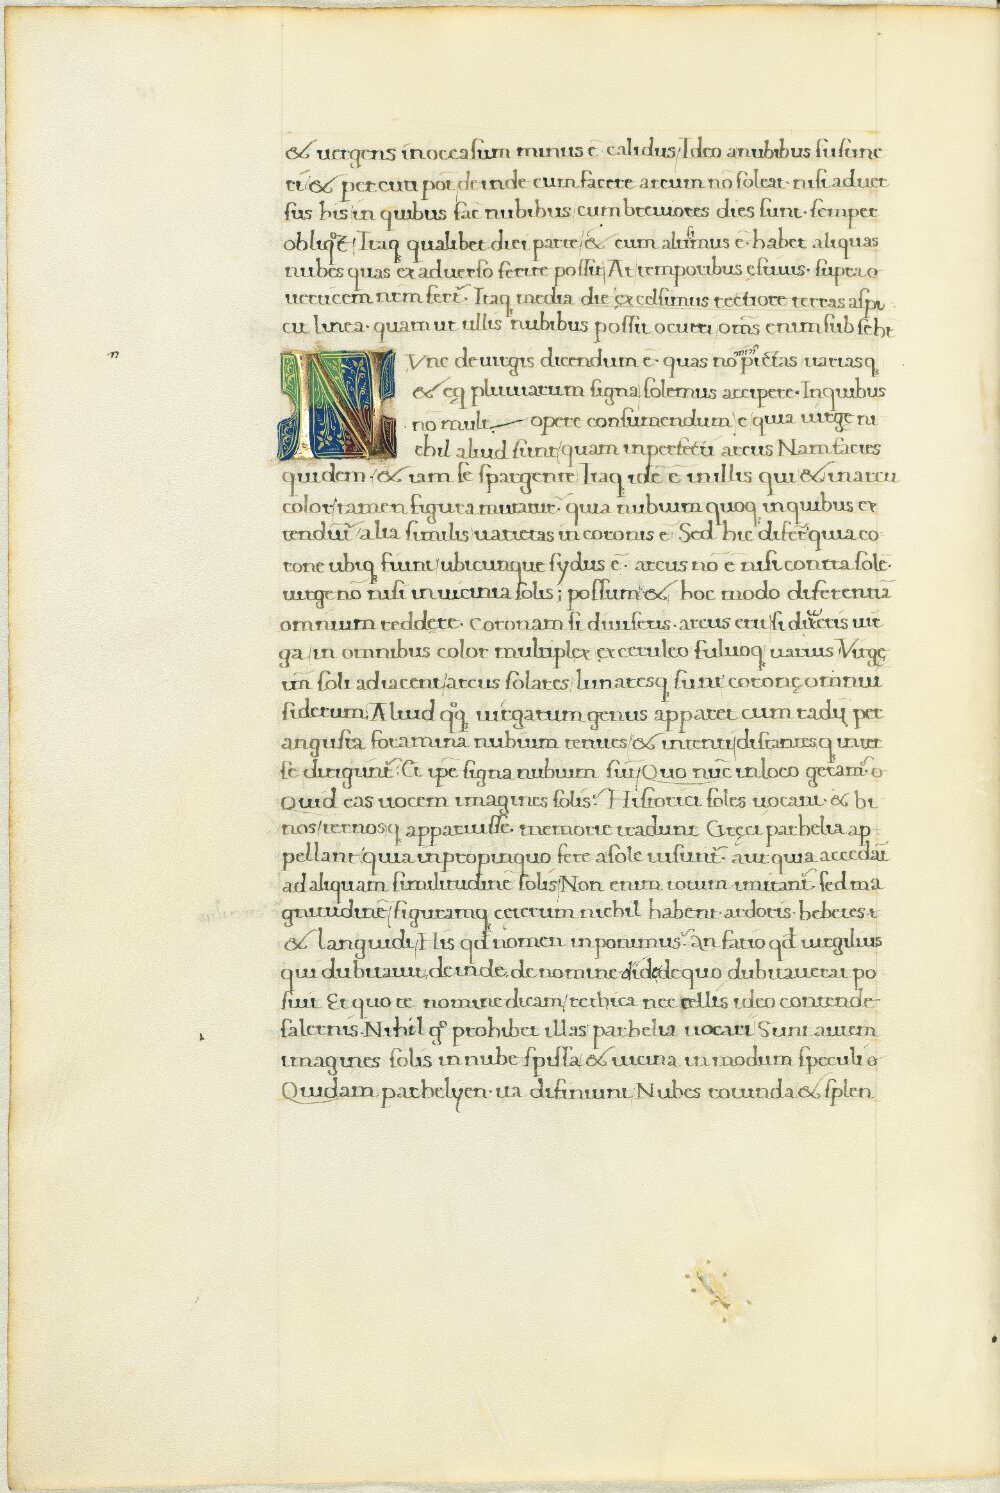 & uergens in occasum minus ē calidus/ Ideo a nubibus sustine
ri/ & percuti pot̄ deinde cum facere arcum nō soleat· nisi aduer
sus his/ in quibus fac̄ nubibus/ cum breuiores dies sunt· semper
obliqꝰ ē/ Itaq; qualibet diei parte/ & cum altissimus ē· habet aliquas
nubes quas ex aduerso ferire possit/ At temporibus ęstiuis· supra
uerticem nrm fert᷑· Itaq; media die/ excelsimus rectiore terras aspi
cit linea· quam ut ullis nubibus possit ocurri om̄s enim sub se hēt
NUnc de uirgis dicendum ē· quas nō minꝰ pictas uariasq;
& eq; pluuiarum signa/ solemus accipere· In quibus
nō mult opere consumendum ē quia uirgę ni
chil aliud sunt/ quam inperfecti arcus Nam facies
quidem/ & iam se spargente Itaq; idē ē in illis qui & in arcu
color/ tamen figura mutatur᷑· quia nubium quoq; in quibus ex
tendūt᷑/ alia similis/ uarietas in coronis ē Sed hic diferr̄ quia co
rone ubiq; fiunt/ ubicunque sydus ē· arcus nō ē nisi contra solē·
uirge nō nisi in uicinia solis; possum & hoc modo diferentiā
omnium reddere· Coronam si diuiseris· arcus erit/ si direxeris uir
ga/ in omnibus color multiplex ex ceruleo fuluoq; uarius/ Virgę
tm̄ soli adiacent/ arcus solares/ lunaresq; sunt coronę omniū
siderum/ Aliud qꝰq; uirgarum genus apparet cum radij per
angusta foramina nubium tenues/ & intenti/ distantesq; inter
se dirigunt᷑· Et ip̄e signa nubium sūt/ Quo nūc in loco geram᷑
Quid eas uocem imagines solis᷑ Historici soles uocant· & bi
nos/ ternosq; apparuisse· memorie tradunt Gręci parhelia ap
pellant/ quia in propinquo fere a sole uisunt᷑· aut quia accedāt
ad aliquam similitudinē solis/ Non enim totum imitant᷑· sed ma
gnitudinē/ figuramq; ceterum nichil habent· ardoris· hebetes·
& languidi/ His qd̄ nomen inponimus᷑ An fatio qd̄ uirgilius
qui dubitauit, deinde, de nomine dide de quo dubitauerat po
suit Et quo te nomine dicam/ rethica nec cellis ideo contende
falernis· Nihil gͦ prohibet illas parhelia uocari Sunt autem
imagines solis in nube spissa & uicina in modum speculi
Quidam parhelyen· ita difiniunt Nubes rotunda & splen